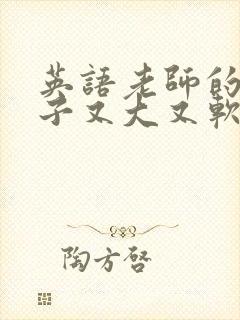 英語老師的
子又大又軟
陶方啓